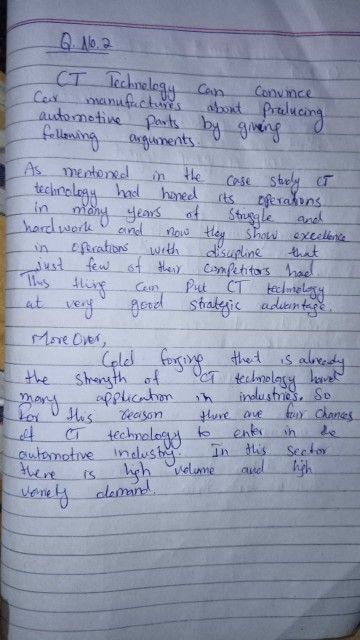 Q. No. 2
CT Technology can convince
Car manufactures about Producing
automotive Parts by giving
following arguments.
As mentioned in the case study CT
technology had honed its operations
in many years of struggle and
hardwork and now they show excellence
in operations with discipline that
just few of their competitors had
This thing can Put CT technology
at very good strategic advantage.
More Over,
Cold forging that is already
the strength of CT technology have
many application in industries. So
for this reason there are fair chances
of CT technology to enter in the
automotive industry. In this sector
there is high volume and high
variety demand.